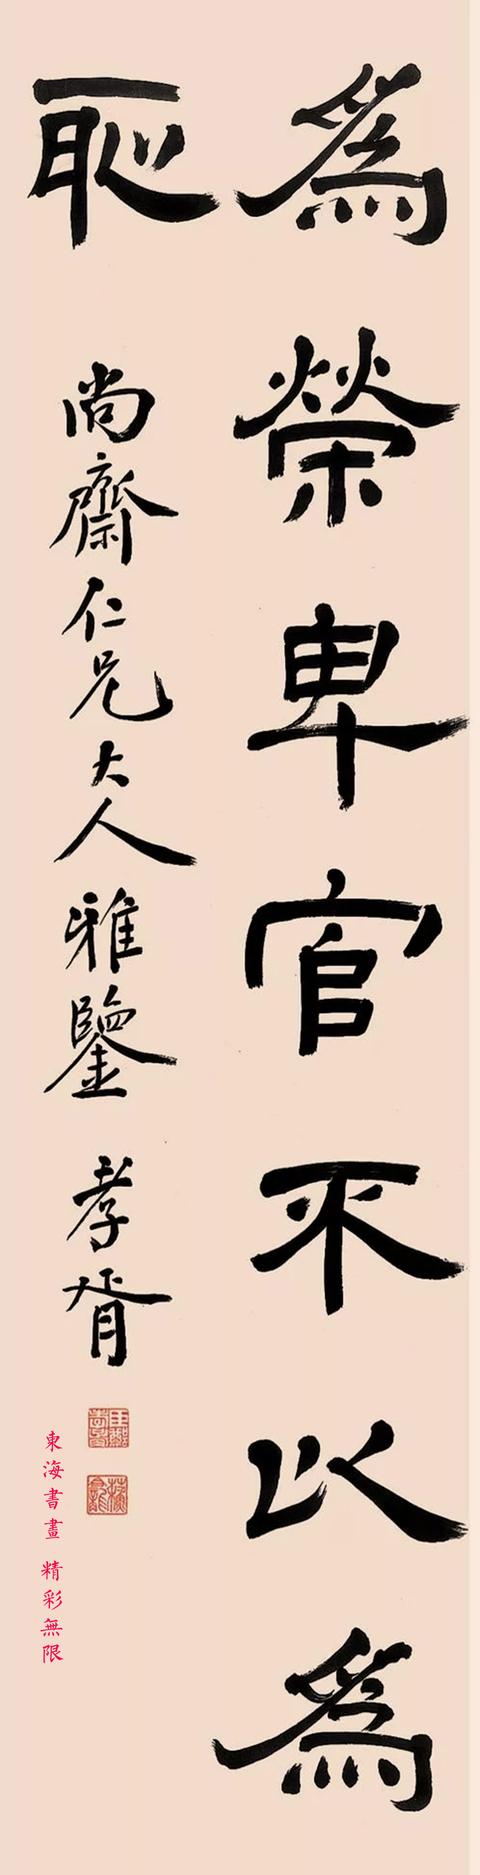 為榮卑官不以為
恥
尚齋仁兄大人雅鑒 孝胥
東海書畫 精彩無限